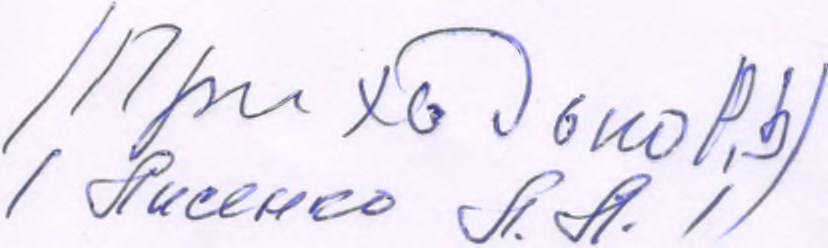 /Приходько Р.В/
/Лисенко Л.Л./